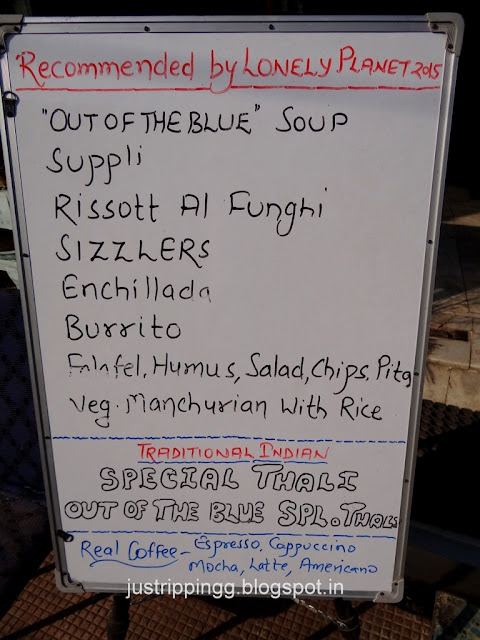 Recommended by LONELY PLANET 2015
"OUT OF THE BLUE" SOUP
Suppli
Rissott Al Funghi
SIZZLERS
Enchillada
Burrito
Falafel, Humus, Salad, Chips, Pita
Veg. Manchurian With Rice
TRADITIONAL INDIAN
SPECIAL THALI
OUT OF THE BLUE SPL. THALI
Real Coffee - Espresso, Cappuccino
Mocha, Latte, Americano
justrippingg.blogspot.in